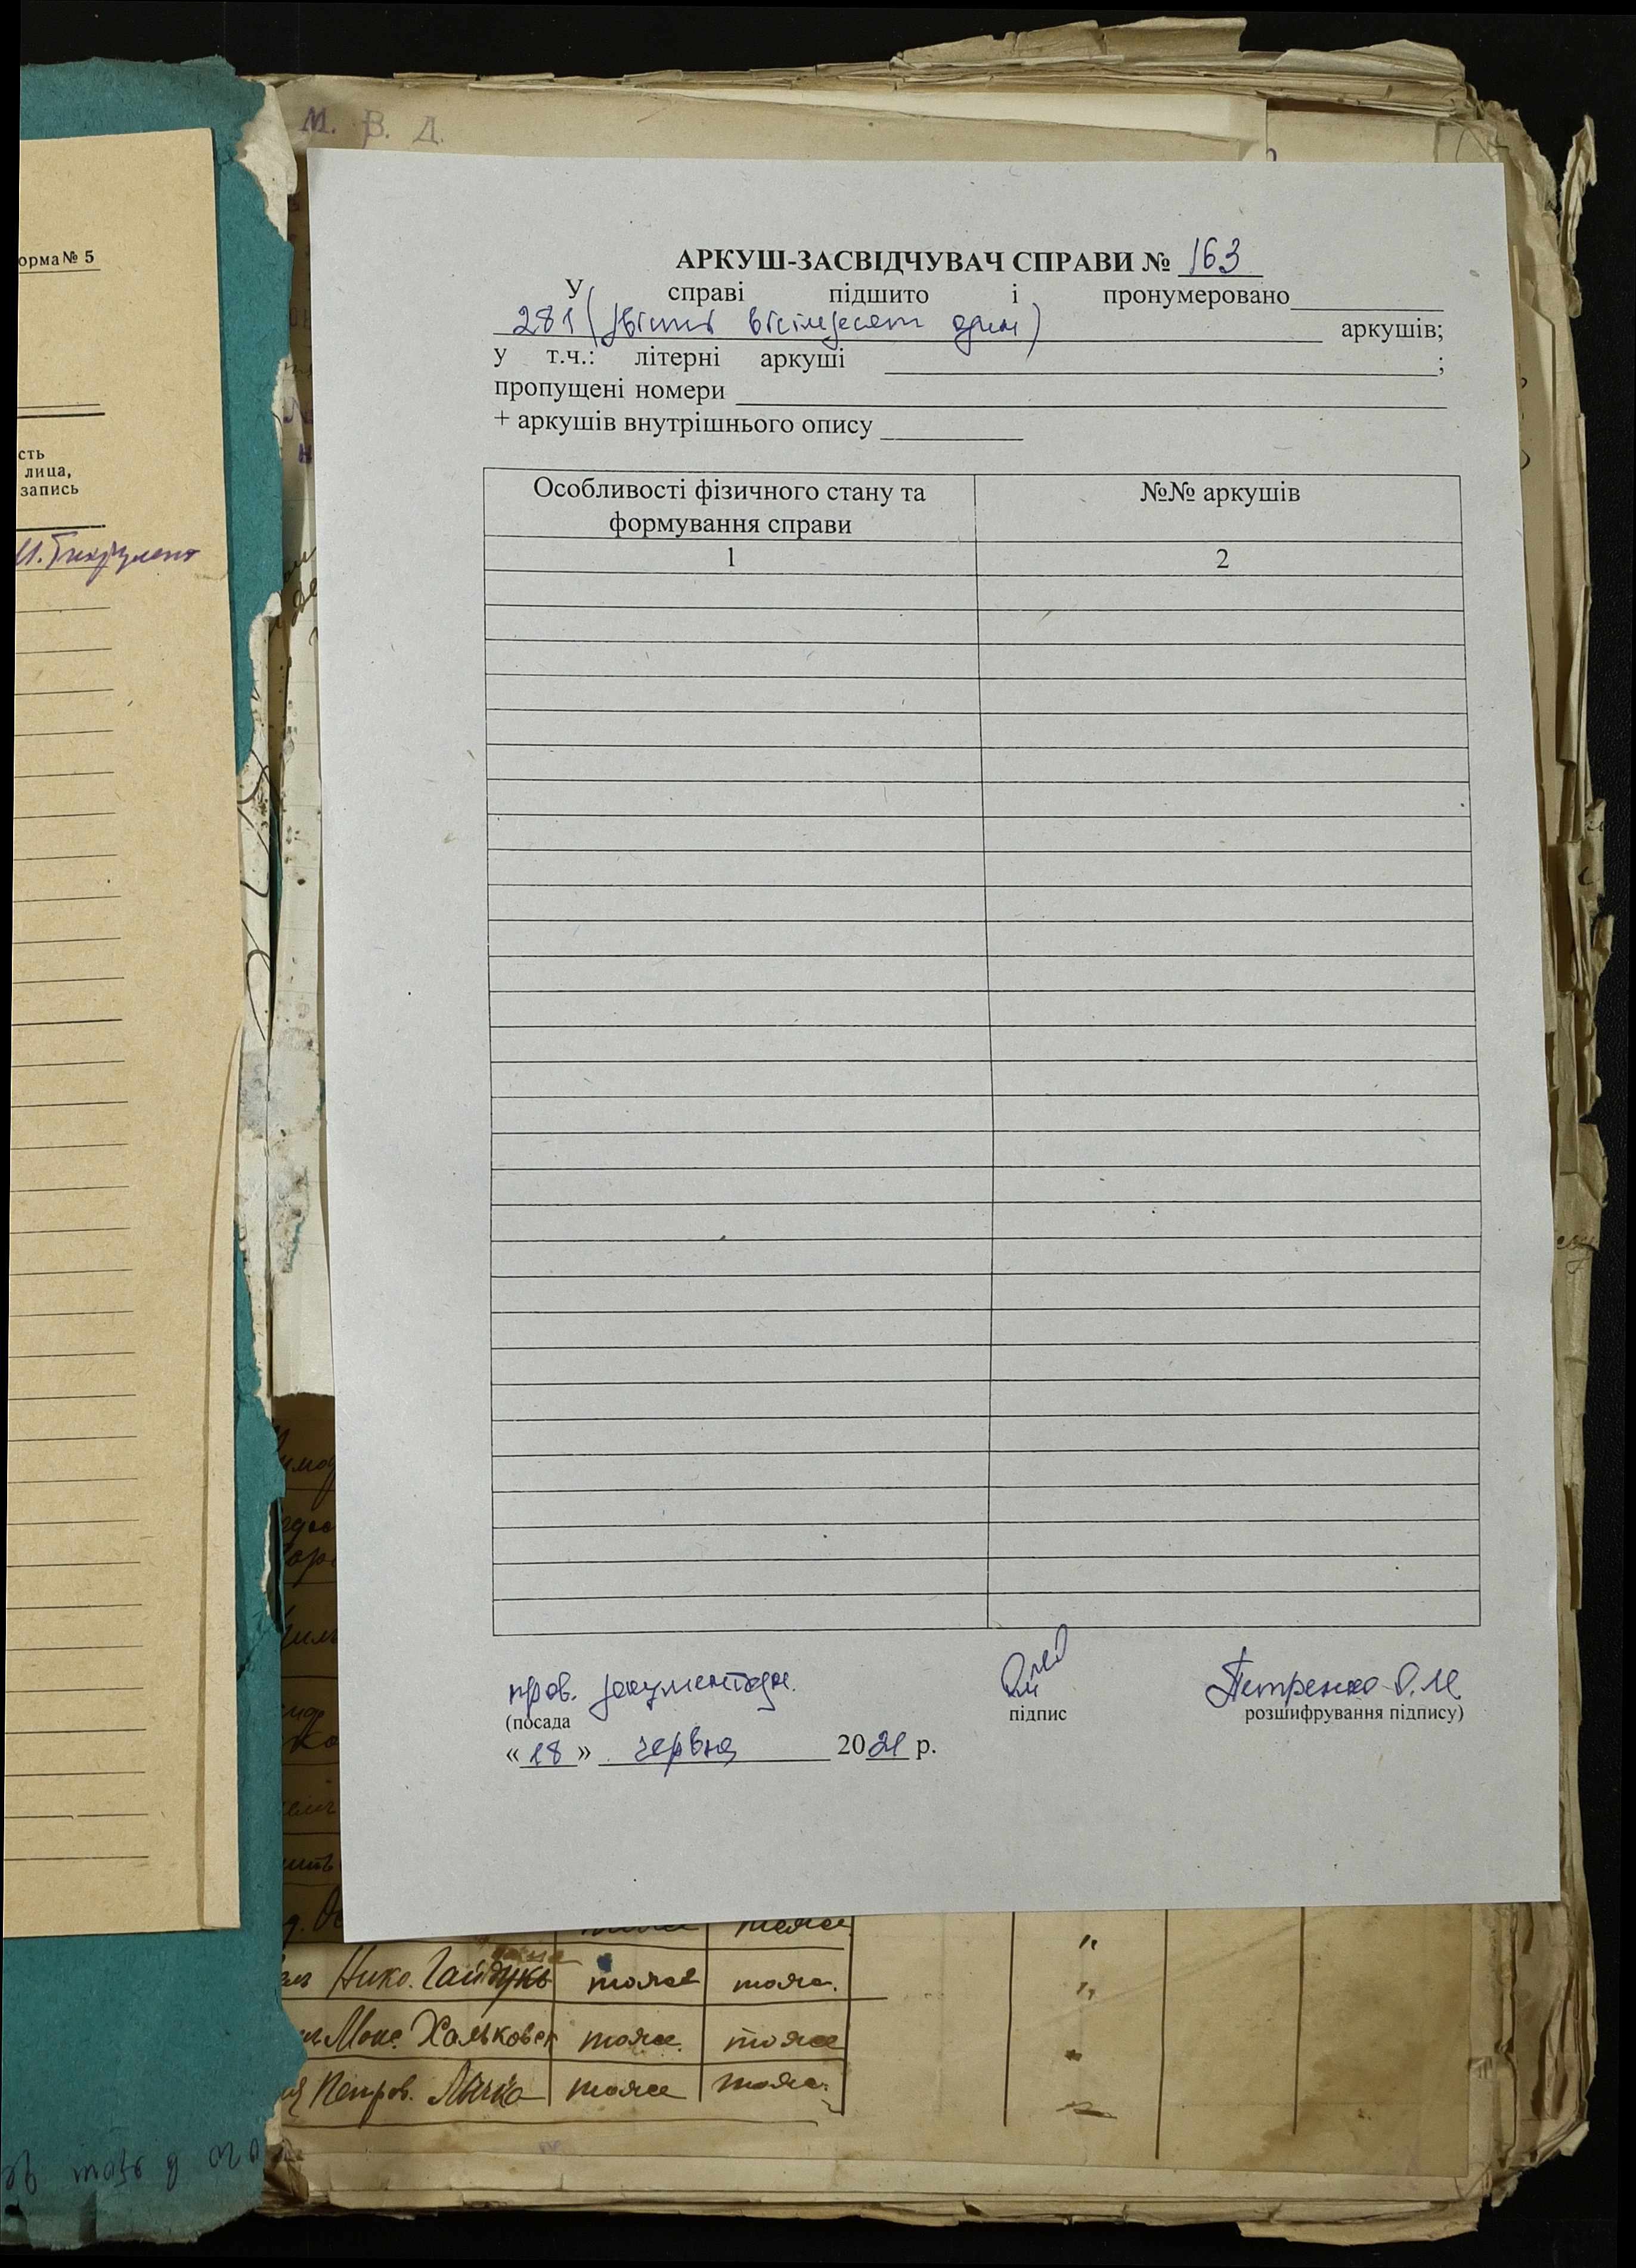 М. В. Д.
орма № 5
сть
лица,
запись
АРКУШ-ЗАСВІДЧУВАЧ СПРАВИ № 163
У справі підшито і пронумеровано
281 (двісті вісімдесят один) аркушів;
у т.ч.: літерні аркуші ;
пропущені номери
+ аркушів внутрішнього опису
Особливості фізичного стану та формування справи
№№ аркушів
1
2
пров. документозн.
Петренко О.М.
(посада
підпис
розшифрування підпису)
« 18 » червня 2021 р.
Нико. Гайдукъ тоже тоже.
тоже. тоже
Петров. тоже тоже.